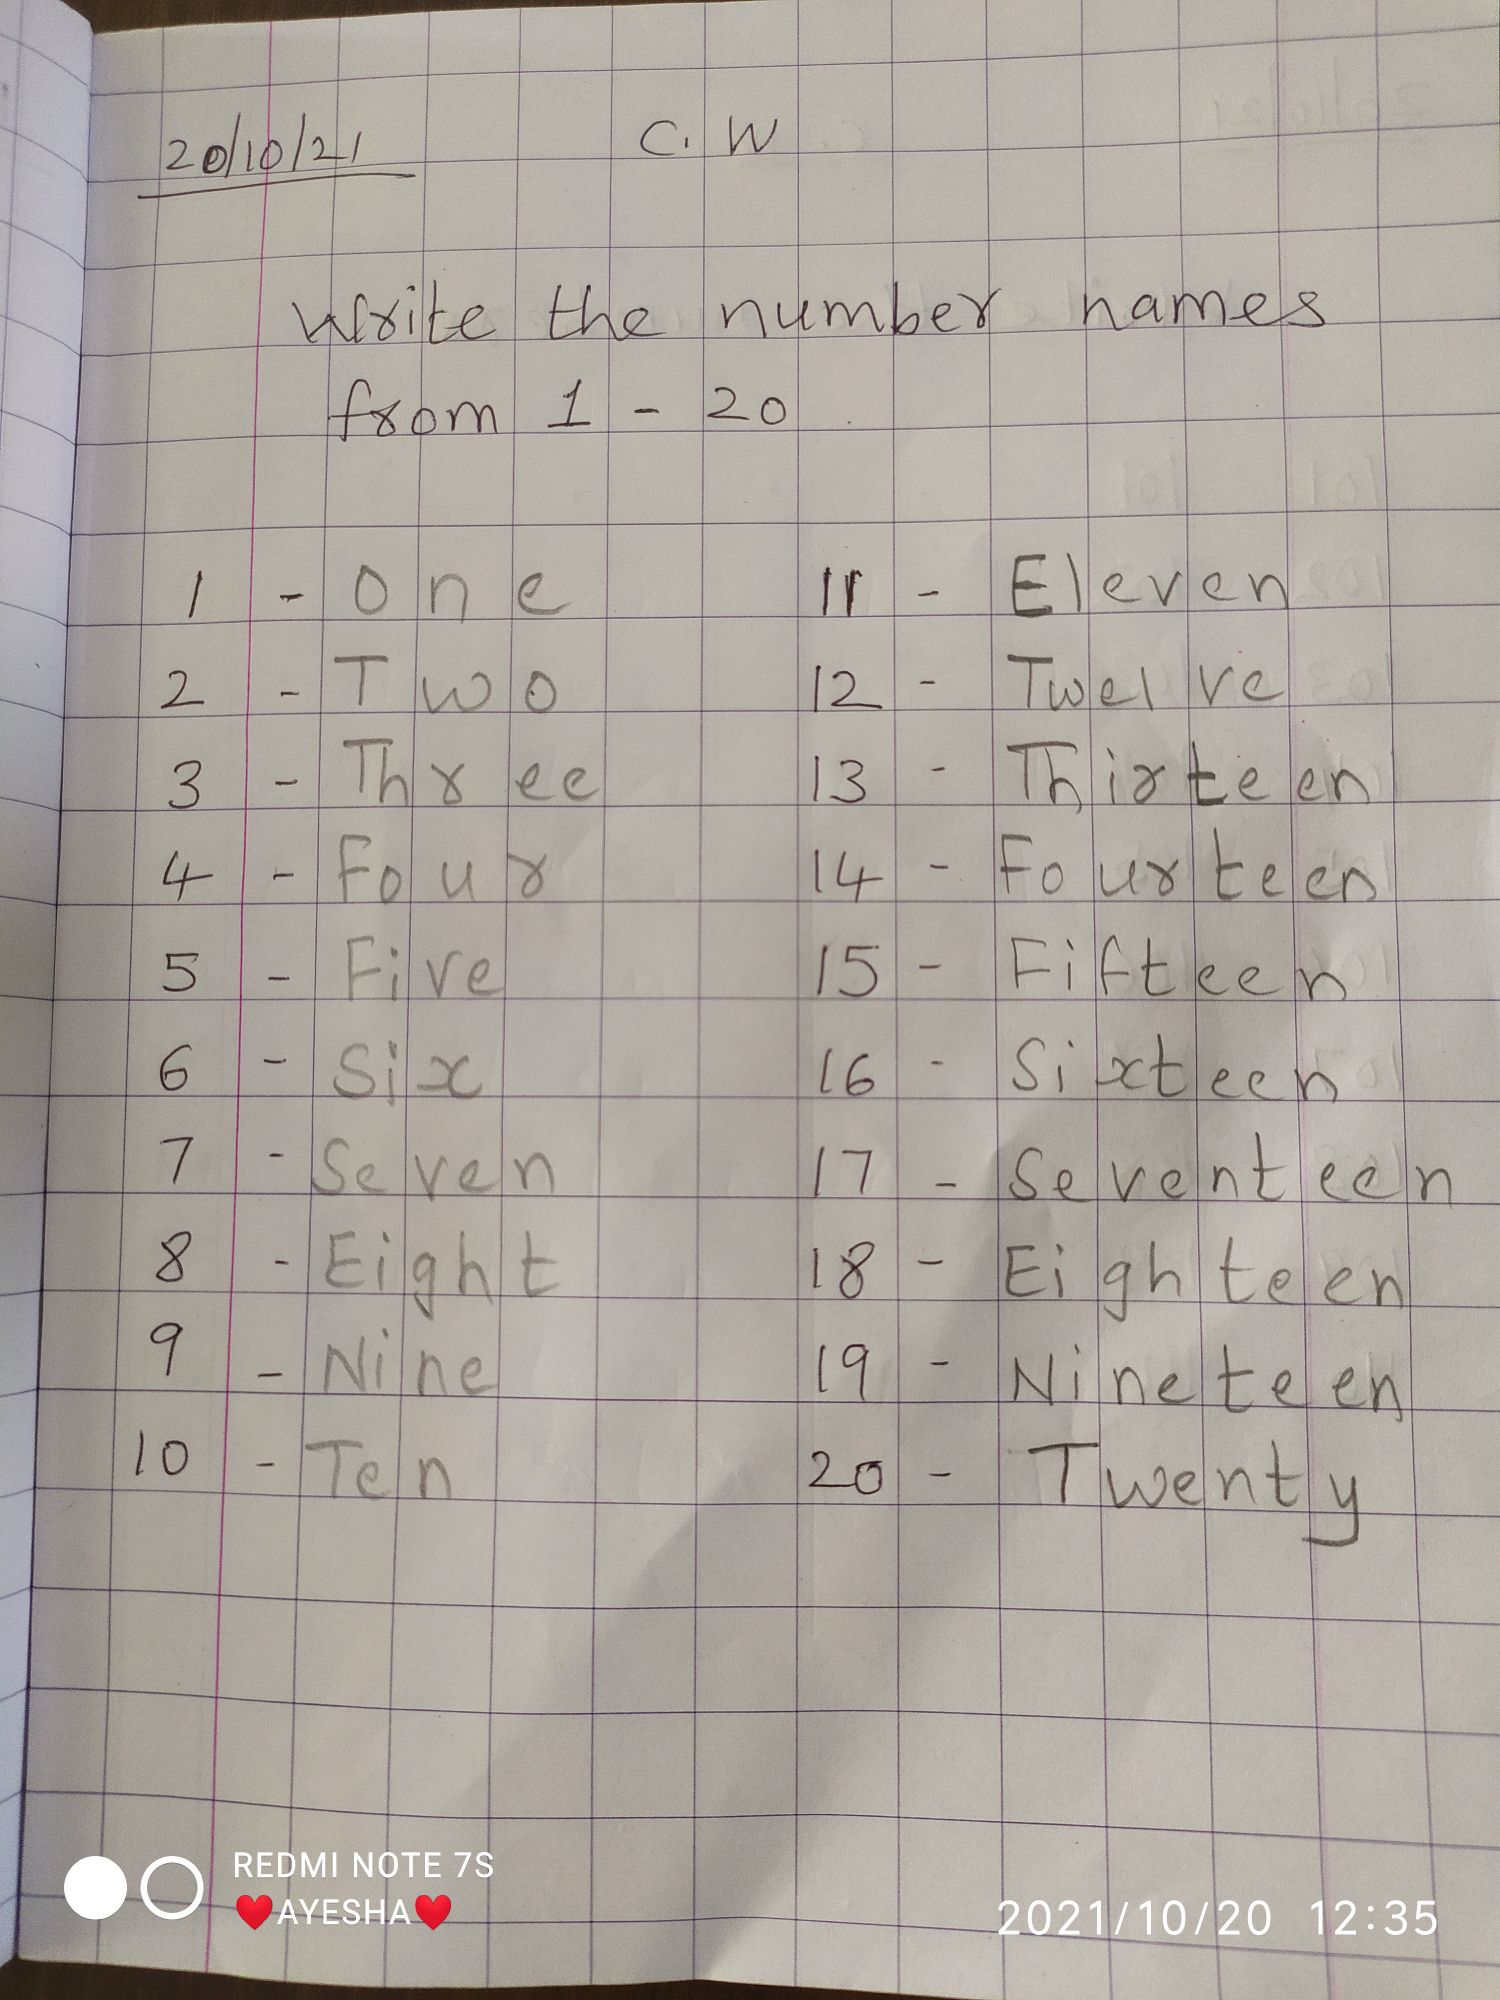 20/10/21 C.W
Write the number names
from 1 - 20
1 - One
2 - Two
3 - Three
4 - Four
5 - Five
6 - Six
7 - Seven
8 - Eight
9 - Nine
10 - Ten
11 - Eleven
12 - Twelve
13 - Thirteen
14 - Fourteen
15 - Fifteen
16 - Sixteen
17 - Seventeen
18 - Eighteen
19 - Nineteen
20 - Twenty
REDMI NOTE 7S
❤️AYESHA❤️
2021/10/20 12:35